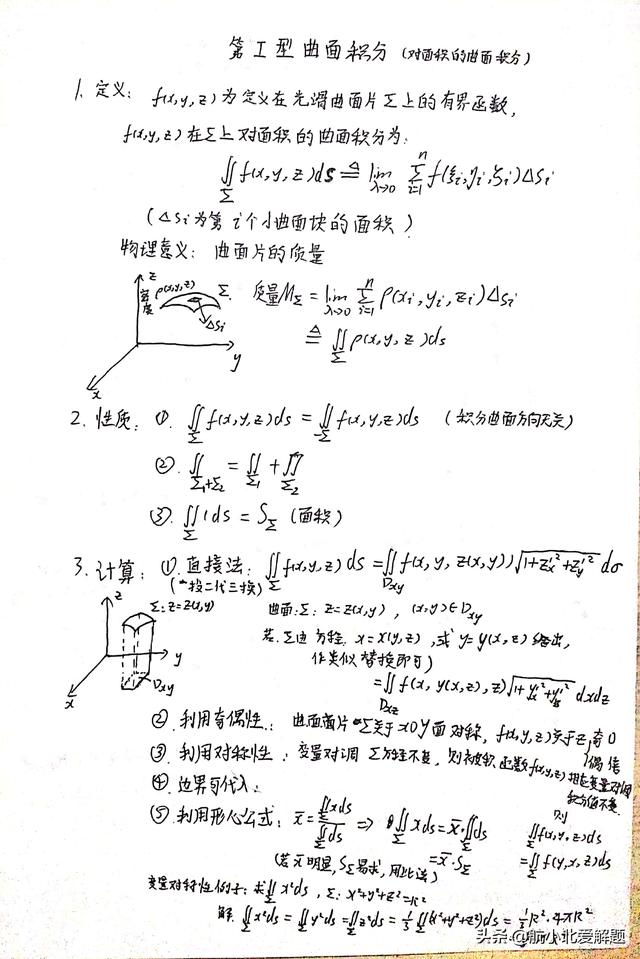 第Ⅰ型曲面积分 (对面积的曲面积分)
1. 定义: f(x,y,z)为定义在光滑曲面片Σ上的有界函数,
f(x,y,z)在Σ上对面积的曲面积分为:
∬_Σ f(x,y,z)ds ≜ lim_{λ→0} Σ_{i=1}^{n} f(ξi,ηi,ζi)ΔSi
(ΔSi为第i个小曲面块的面积)
物理意义: 曲面片的质量
z ρ(x,y,z) Σ. 质量M_Σ = lim_{λ→0} Σ_{i=1}^{n} ρ(xi,yi,zi)ΔSi
密度 ΔSi
≜ ∬_Σ ρ(x,y,z)ds
y
x
2. 性质: ①. ∬_Σ f(x,y,z)ds = ∬_{-Σ} f(x,y,z)ds (积分曲面方向无关)
②. ∬_{Σ1+Σ2} = ∬_{Σ1} + ∬_{Σ2}
③. ∬_Σ 1ds = S_Σ (面积)
3. 计算: ①. 直接法: ∬_Σ f(x,y,z)ds = ∬_{Dxy} f(x,y,z(x,y))√(1+z'x²+z'y²) dσ
(一投二代三换)
z Σ:z=z(x,y) 曲面:Σ: z=z(x,y), (x,y)∈Dxy
y 若Σ由方程 x=x(y,z), 或 y=y(x,z)给出,
x Dxy 作类似替换即可)
= ∬_{Dxz} f(x,y(x,z),z)√(1+y'x²+y'z²) dxdz
② 利用奇偶性: 曲面片Σ关于xOy面对称, f(x,y,z)关于z 奇 0
偶 倍
③ 利用对称性: 变量对调 Σ方程不变, 则被积函数f(x,y,z)相应变量对调
积分值不变.
④ 边界可代入.
则
⑤ 利用形心公式: x̄ = ∬_Σ xds / ∬_Σ ds ⇒ ∬_Σ xds = x̄·∬_Σ ds ∬_Σ f(x,y,z)ds
= x̄·S_Σ = ∬_Σ f(y,x,z)ds
(若x̄明显, S_Σ易求, 用此法)
变量对称性例子: 求∬_Σ x²ds, Σ: x²+y²+z²=R²
解: ∬_Σ x²ds = ∬_Σ y²ds = ∬_Σ z²ds = 1/3 ∬_Σ (x²+y²+z²)ds = 1/3 R²·4πR²
头条 @航小北爱解题